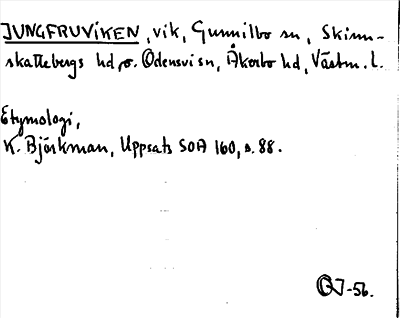 JUNGFRUVIKEN, vik, Gunnilbo sn, Skinn-
skattebergs hd, o. Odensvi sn, Åkerbo hd, Västm. l.
Etymologi,
K. Björkman, Uppsats SOA 160, s. 88.
GJ-56.